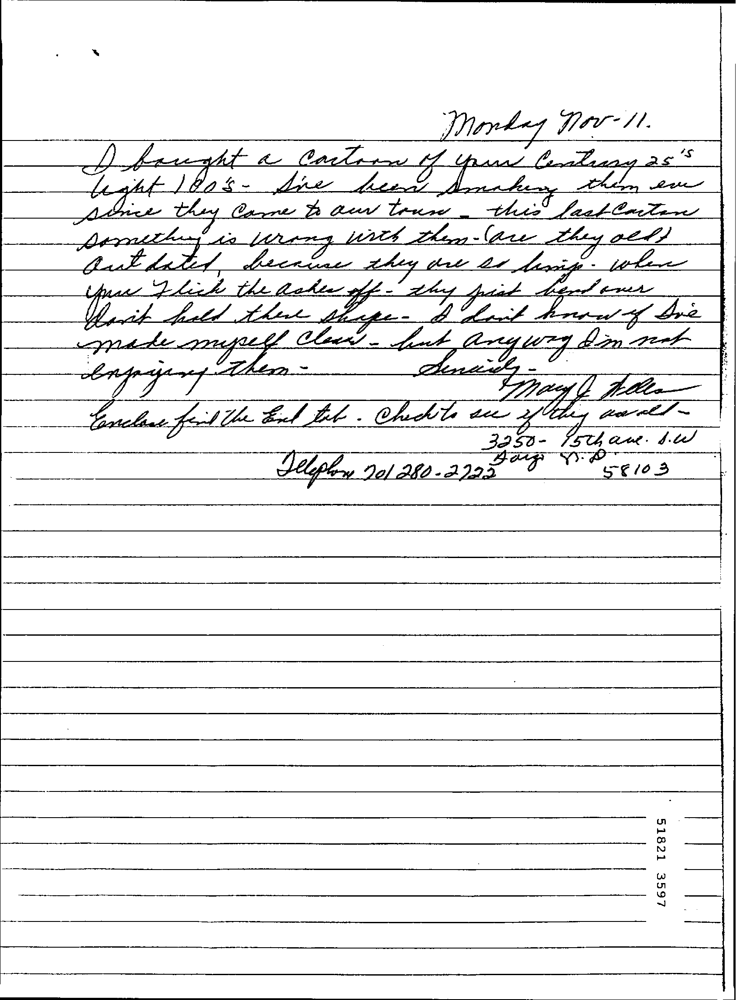 Monday Nov-11.
I bought a Cartoon of your Century 25's
light 100's - I've been smoking them ever
since they came to our town - this last Carton
something is wrong with them - (are they old)
Out dated, because they are so limp. when
you Flick the ashes off - thy just bend over
don't hold there shape - I don't know if I've
made myself clear - but anyway I'm not
enjoying them -
Sincerely -
Mary J.
Enclose find the End tab. Check to see if they are old -
3250 - 15th ave. S.W
Fargo N.D.
Telephone 701 280-2722
58103
51821 3597